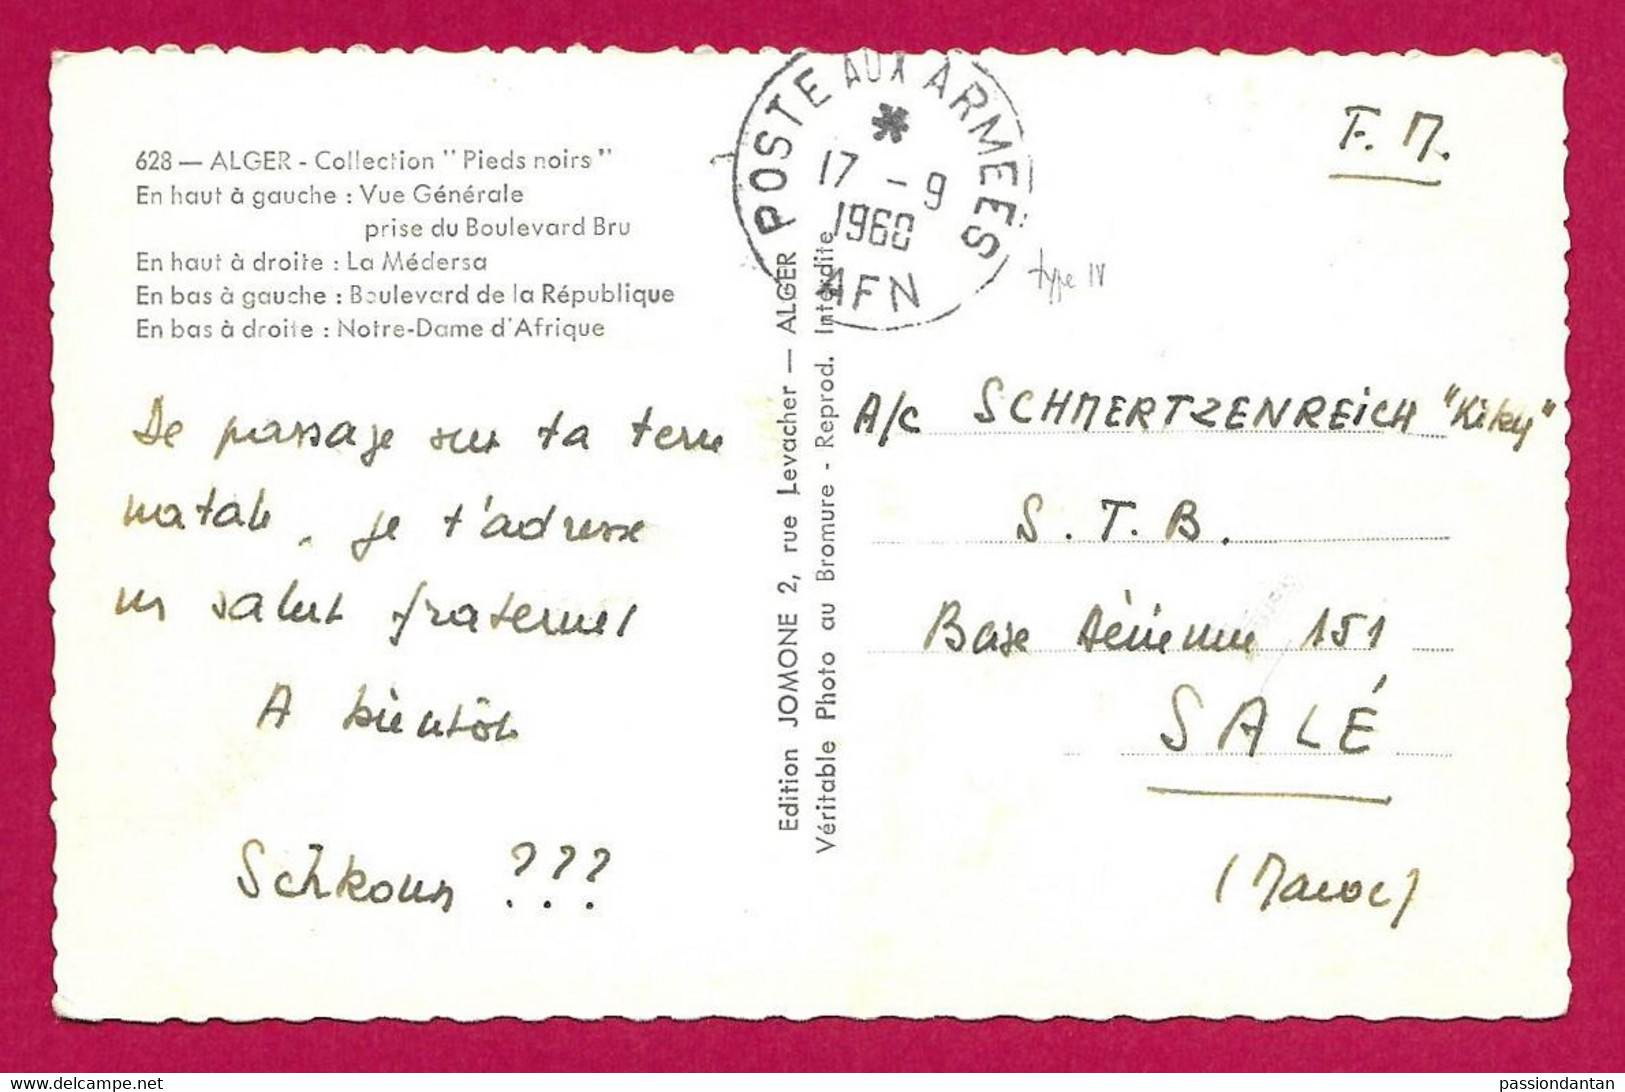 628 — ALGER - Collection "Pieds noirs"
En haut à gauche : Vue Générale
prise du Boulevard Bru
En haut à droite : La Médersa
En bas à gauche : Boulevard de la République
En bas à droite : Notre-Dame d'Afrique
De passage sur ta terre
natale, je t'adresse
un salut fraternel
A bientôt
Schkoun ???
Edition JOMONE 2, rue Levacher — ALGER
Véritable Photo au Bromure - Reprod. Interdite
POSTE AUX ARMEES
17 - 9
1960
AFN
type IV
F. M.
A/C SCHMERTZENREICH "Kiky"
S. T. B.
Base Aérienne 151
SALÉ
(Maroc)
https://www.delcampe.net
passiondantan